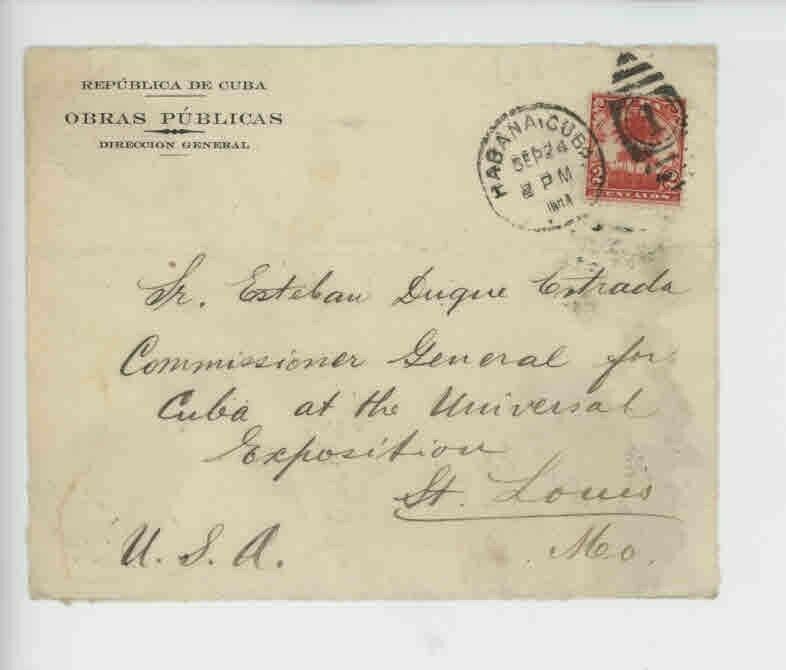 REPÚBLICA DE CUBA
OBRAS PÚBLICAS
DIRECCION GENERAL
HABANA, CUBA
SEP 24
PM
2 2
CENTAVOS
1
Sr. Esteban Duque Estrada
Commissioner General for
Cuba at the Universal
Exposition
St. Louis
U. S. A. Mo.